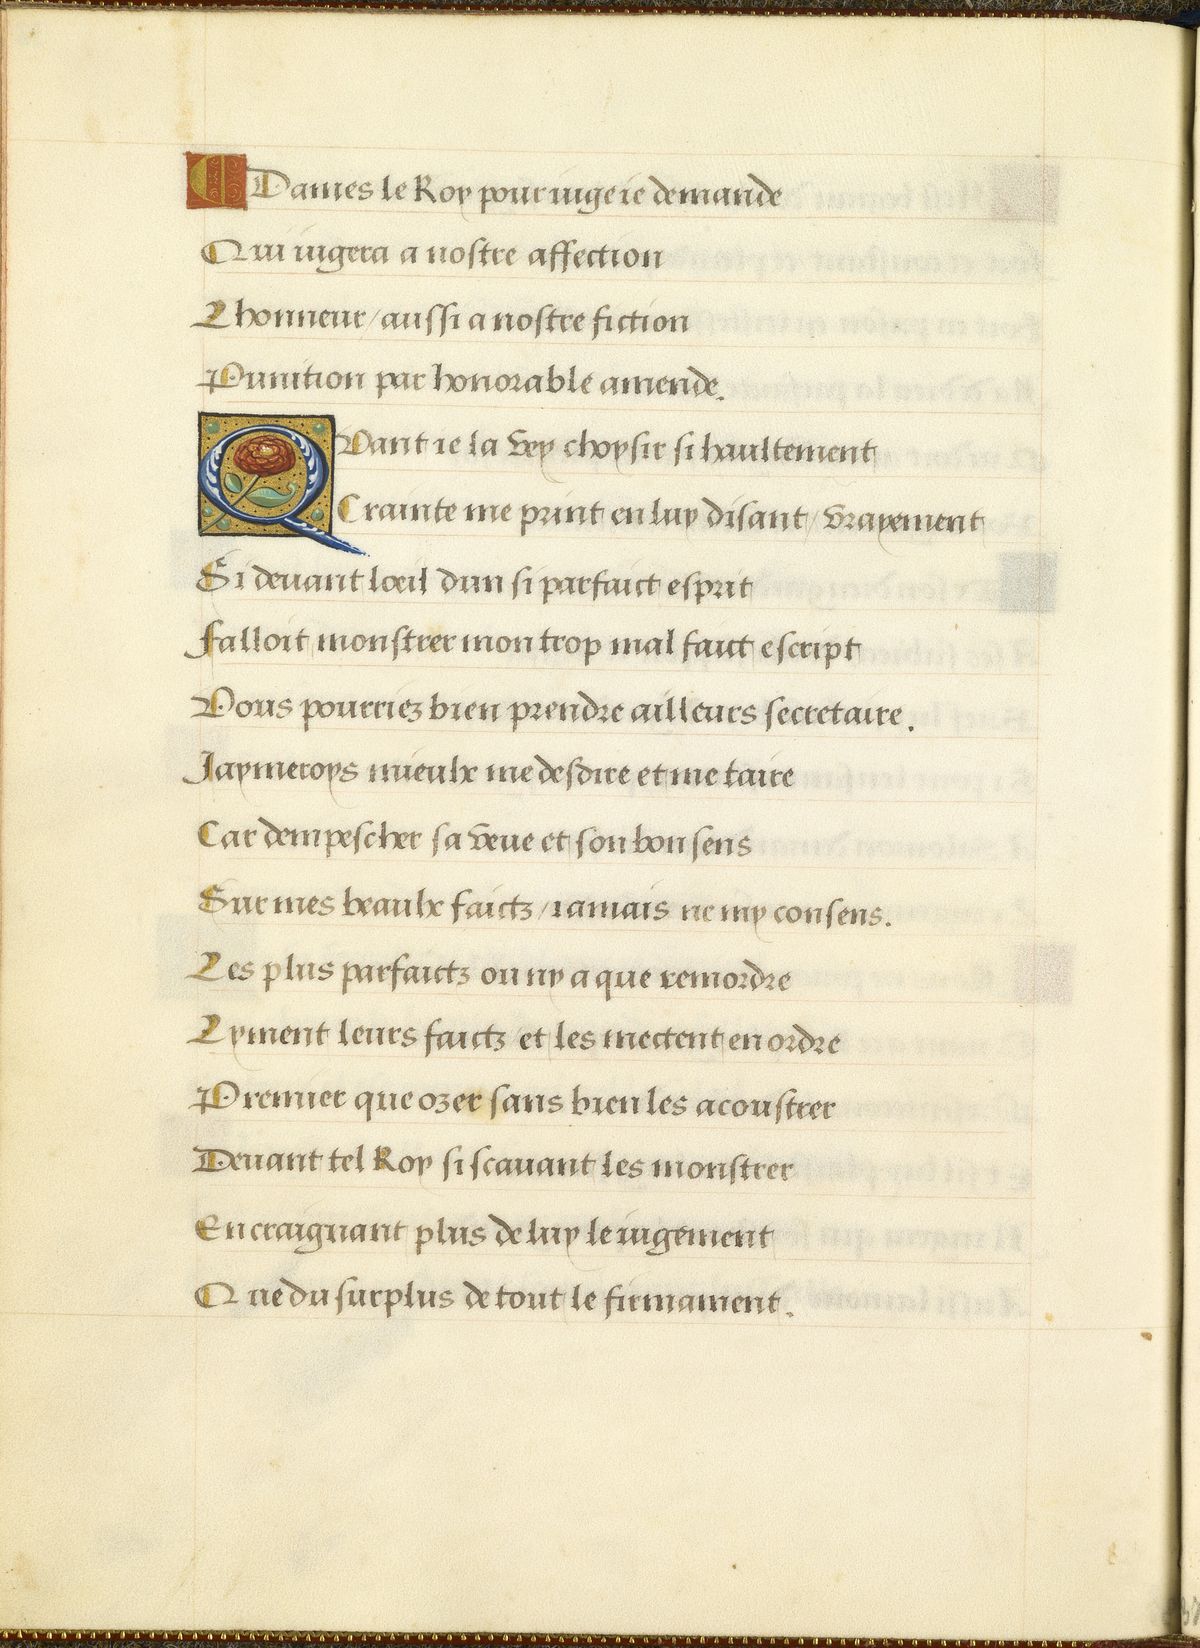 Dames le Roy pour iuge ie demande
Qui iugera a nostre affection
Lhonneur / aussi a nostre fiction
Punition par honorable amende.
Quant ie la vey choysir si haultement
Crainte me print en luy disant / vrayement
Si deuant loeil dun si parfaict esprit
Falloit monstrer mon trop mal faict escript
Vous pourriez bien prendre ailleurs secretaire.
Jaymeroys mieulx me desdire et me taire
Car dempescher sa veue et son bon sens
Sur mes beaulx faictz / iamais ne my consens.
Les plus parfaictz ou ny a que remordre
Lyment leurs faictz et les mectent en ordre
Premier que ozer sans bien les acoustrer
Deuant tel Roy si scauant les monstrer
En craignant plus de luy le iugement
Que du surplus de tout le firmament.